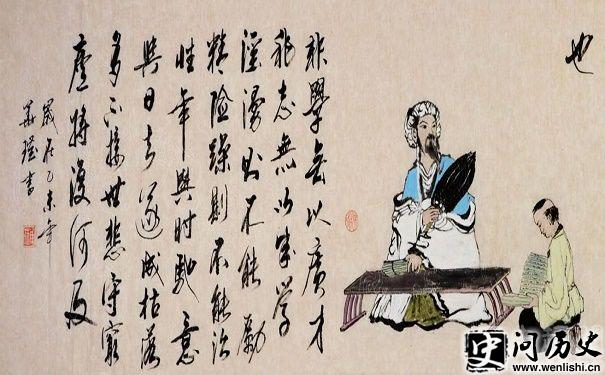 也
非學無以廣才
非志無以成學
淫漫則不能勵
精險躁則不能治
性年與時馳意
與日去遂成枯落
多不接世悲守窮
廬將復何及
歲在乙未年
書
史 问历史
www.wenlishi.cn